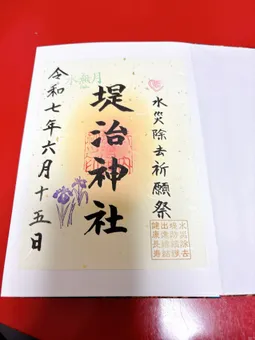 水災除去祈願祭
堤治神社
水無月
令和七年六月十五日